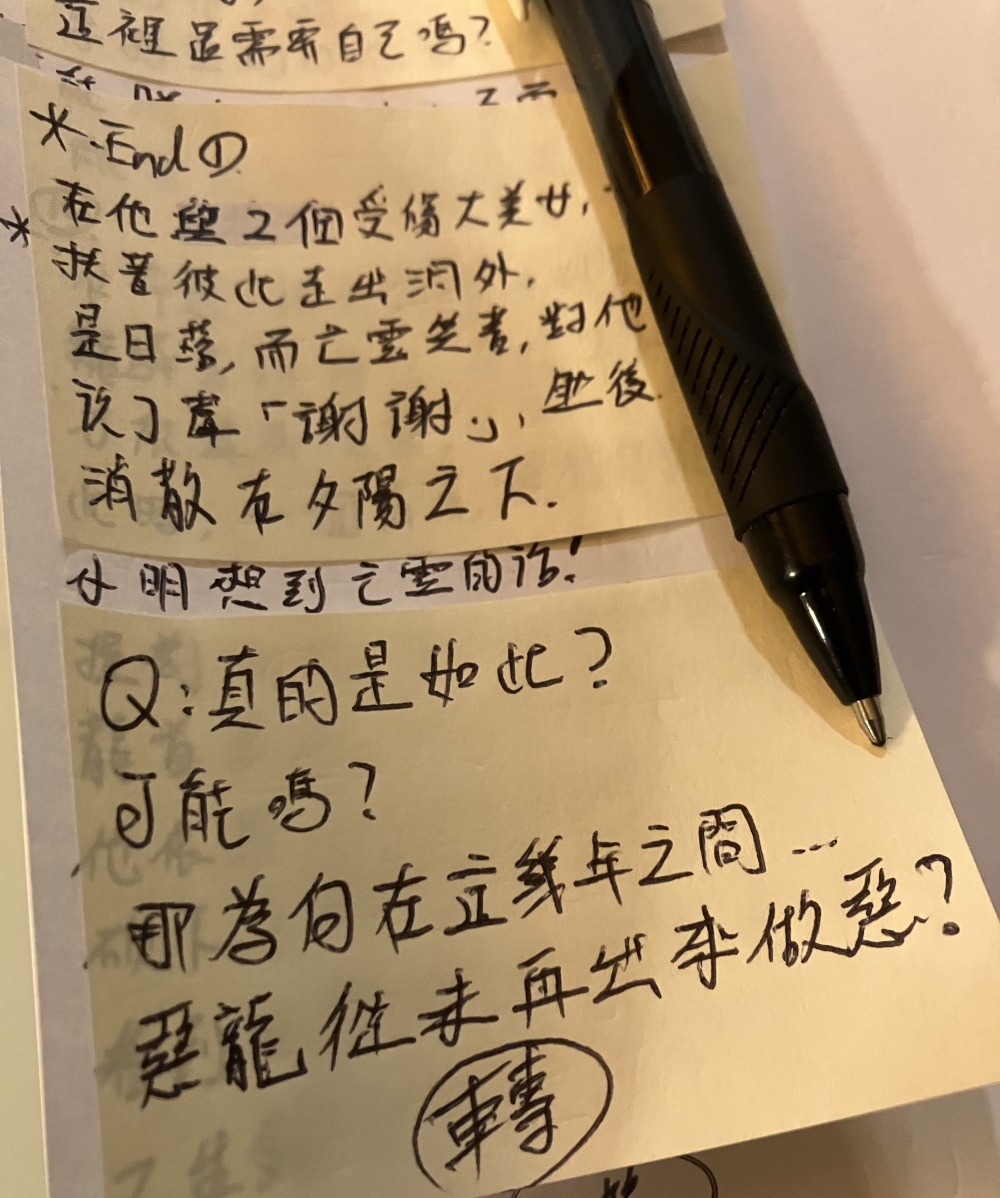 這裡還需要自己嗎?
*.End①
在他與2個受傷大美女,
* 扶著彼此走出洞外,
是日落,而亡靈笑著,對他
說了聲「謝謝」,然後
消散在夕陽之下.
小明想到亡靈的話!
Q:真的是如此?
可能嗎?
那為何在這幾年之間...
惡龍從未再出來做惡?
轉